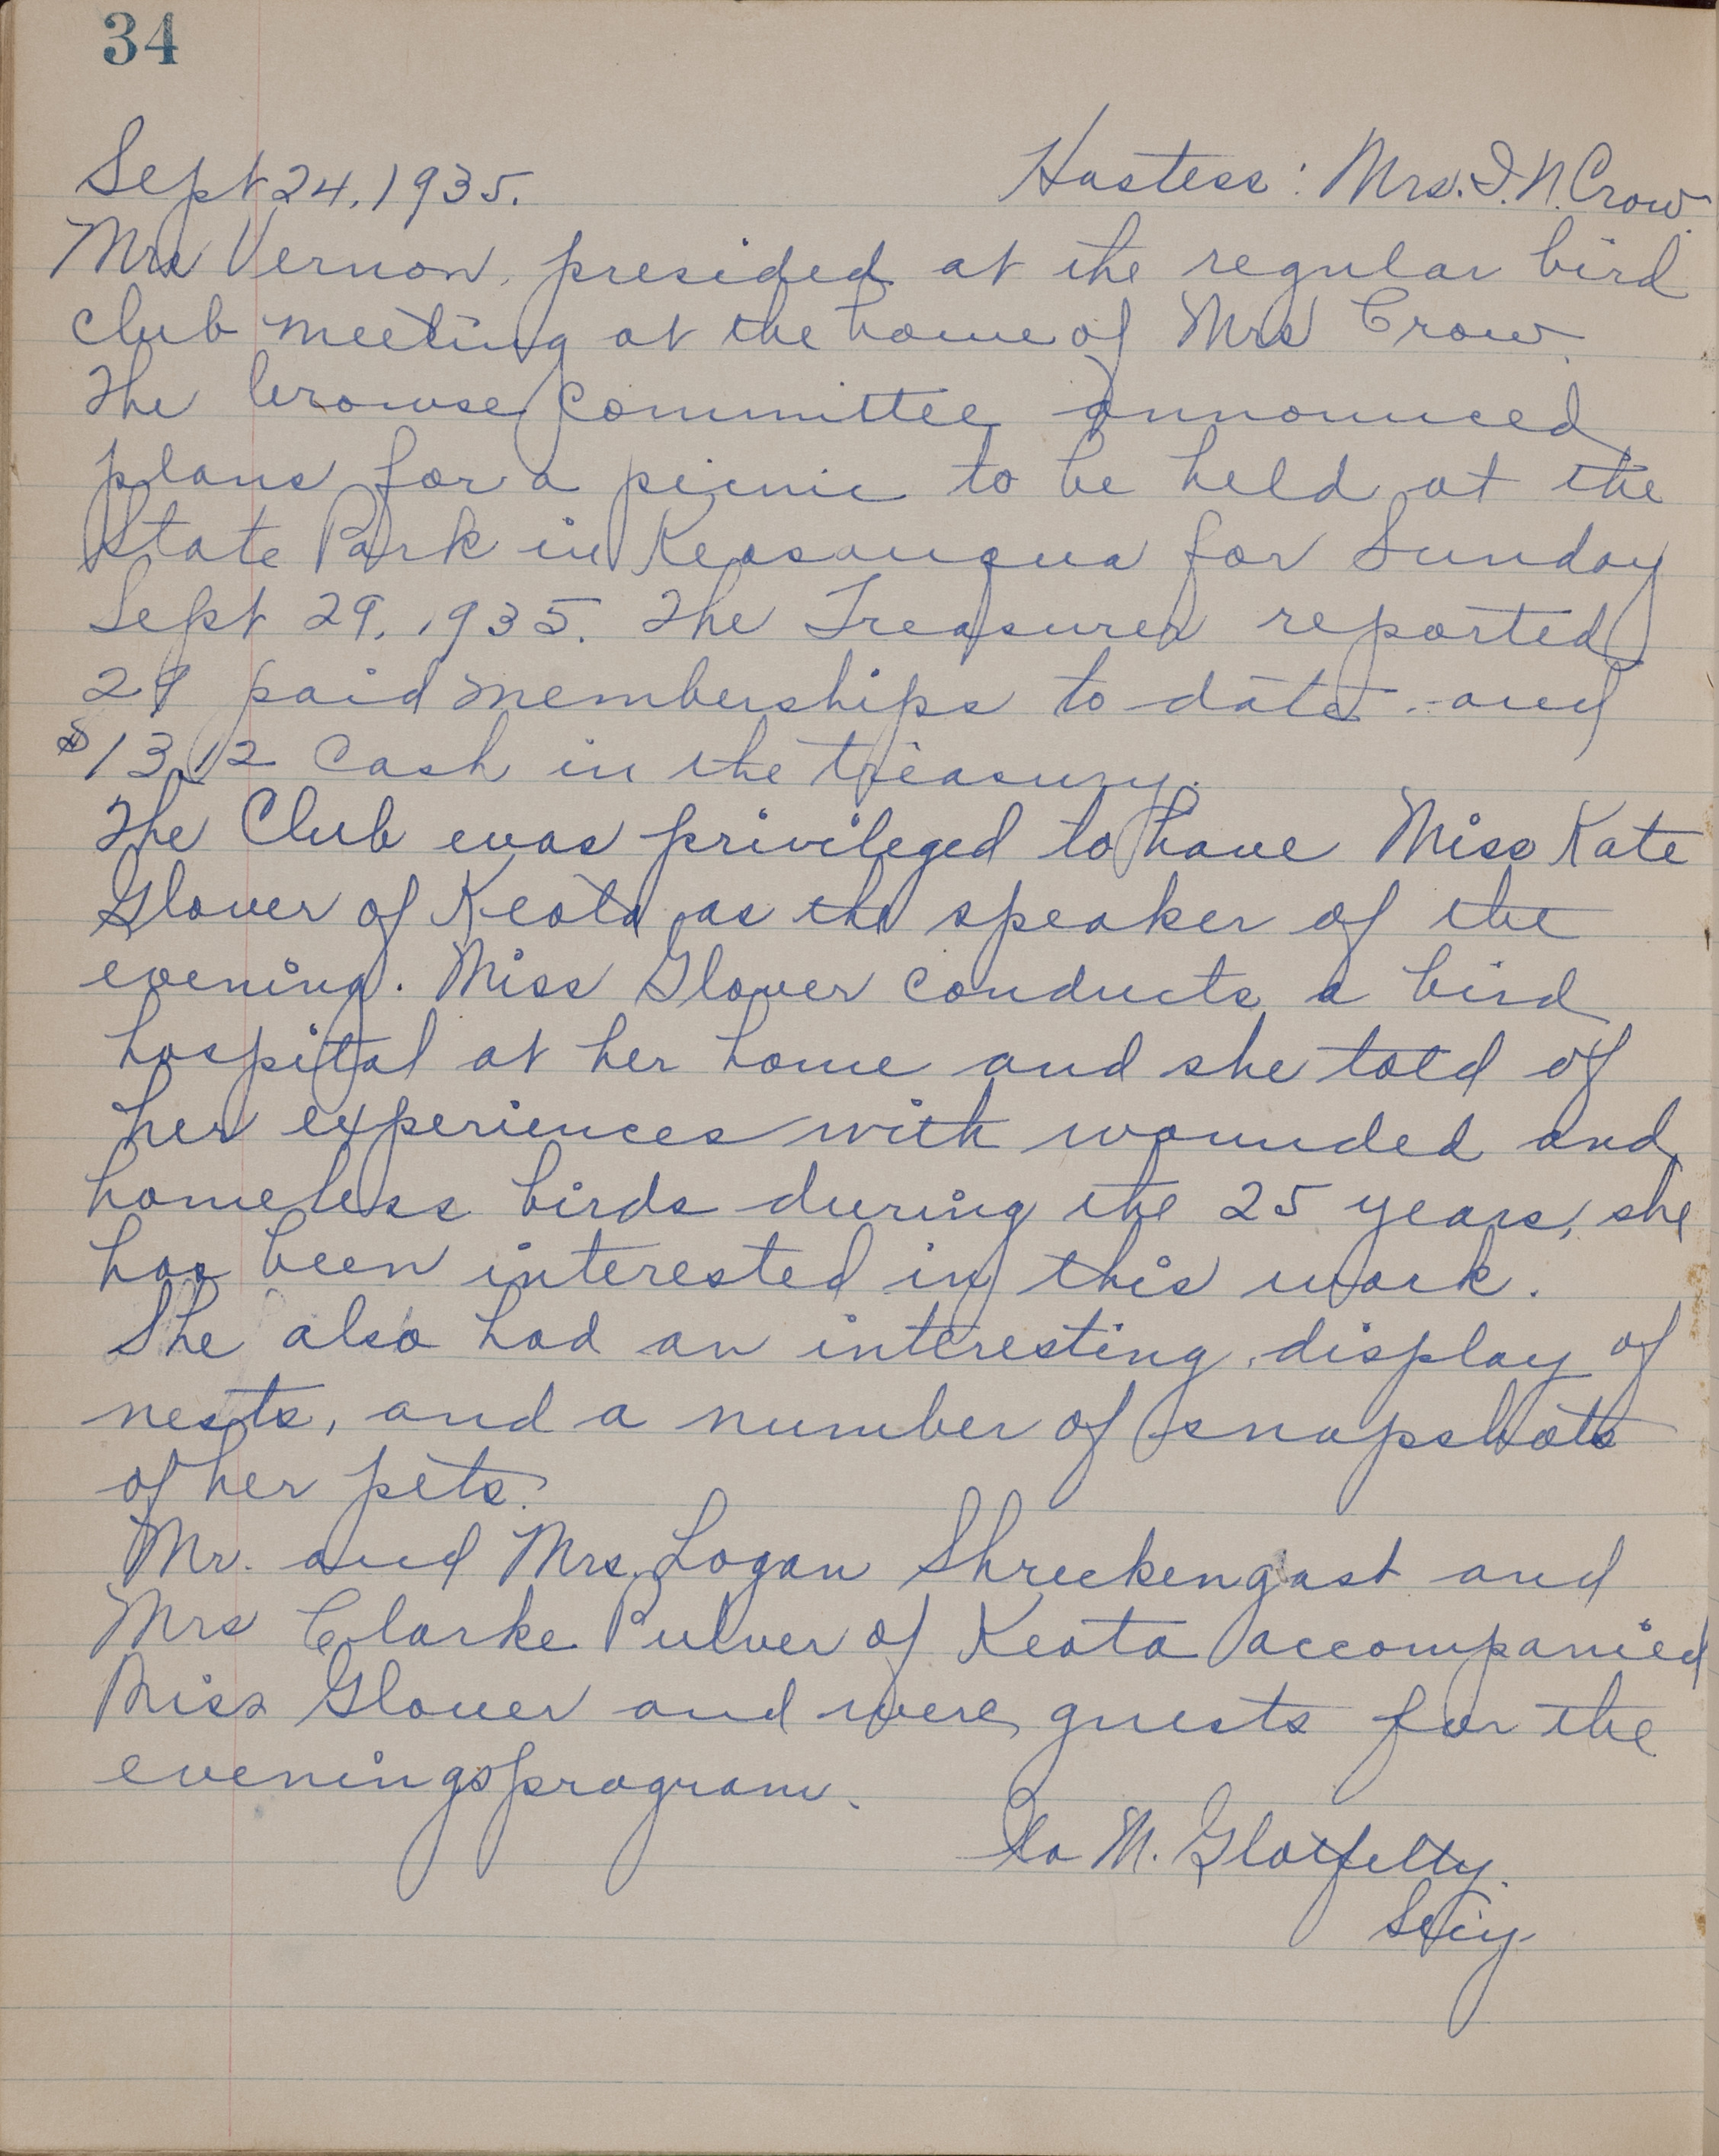 34
Sept 24, 1935. Hostess: Mrs. I. N. Crow.
Mrs Vernon, presided at the regular bird
club meeting at the home of Mrs Crow.
The browse committee announced
plans for a picnic to be held at the
State Park in Keosauqua for Sunday
Sept 29, 1935. The Treasurer reported
29 paid memberships to date and
$13.12 cash in the treasury.
The Club was privileged to have Miss Kate
Glover of Keota as the speaker of the
evening. Miss Glover conducts a bird
hospital at her home and she told of
her experiences with wounded and
homeless birds during the 25 years, she
has been interested in this work.
She also had an interesting display of
nests, and a number of snapshots
of her pets.
Mr. and Mrs. Logan Shreckengast and
Mrs Clarke Pulver of Keota accompanied
Miss Glover and were guests for the
evenings program.
M. Glotfelty.
Sec'y